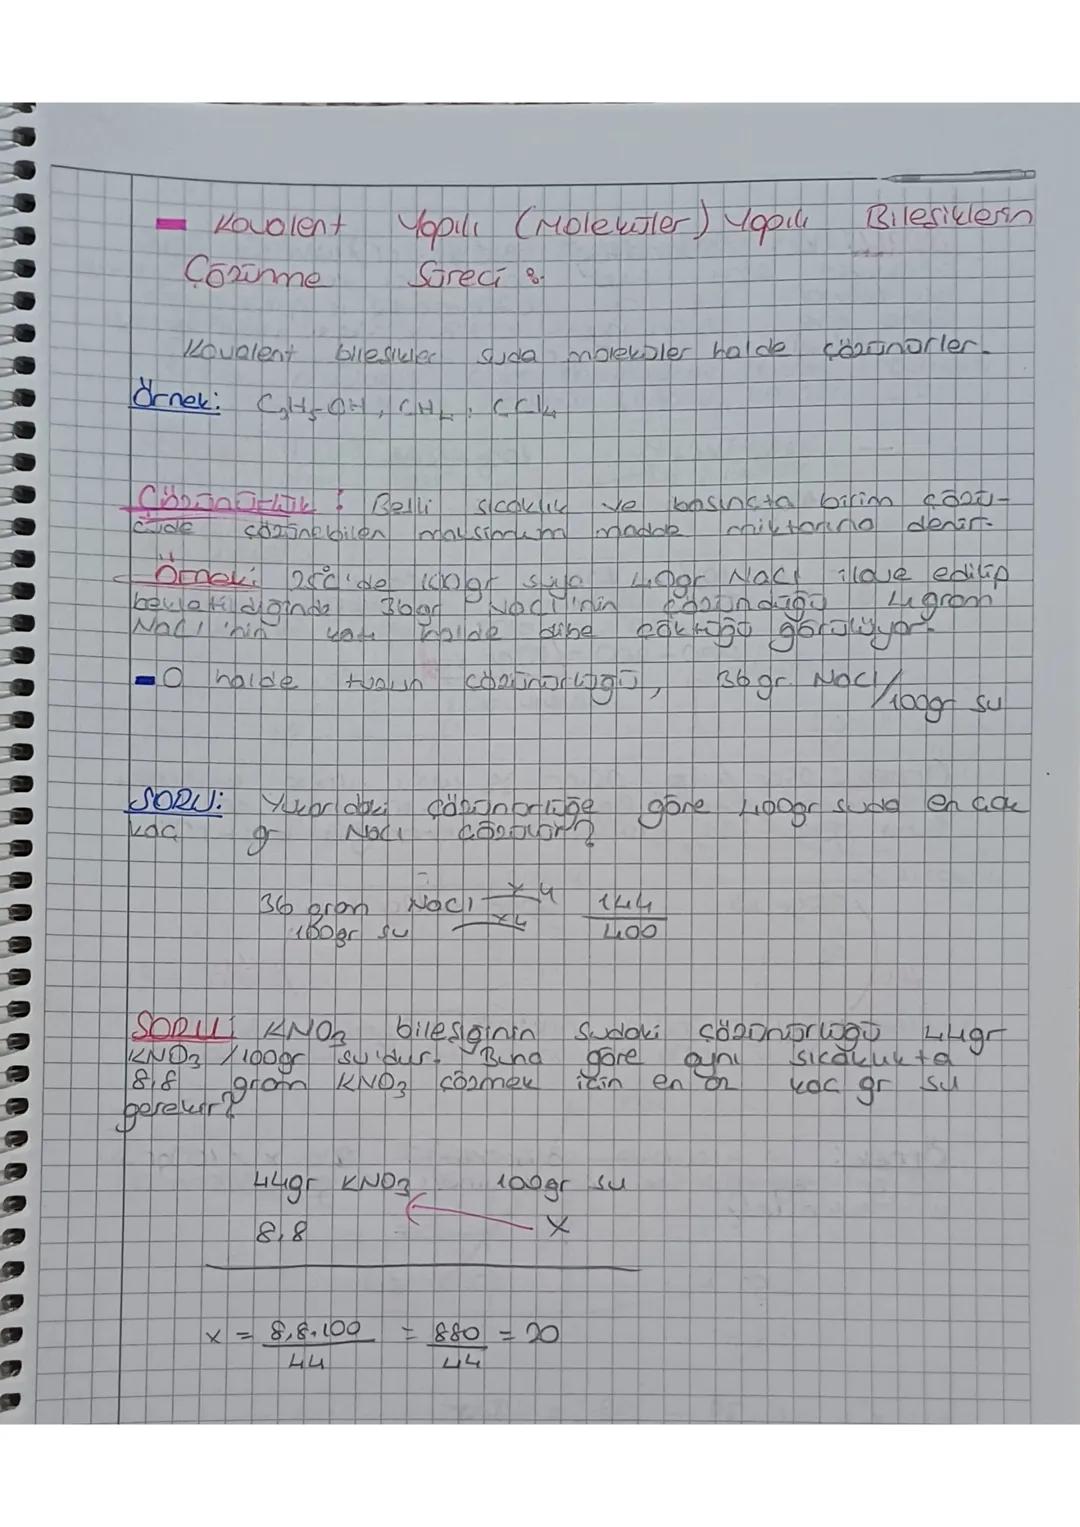 Kovalent Yapılı (Moleküler) Yapılı Bileşiklerin
Çözünme Süreci :
Kovalent bileşikler suda moleküler halde çözünürler.
Örnek: C₂H₅OH, CH₄, CCl₄
Çözünürlük : Belli sıcaklık ve basınçta birim çözü-
cüde çözünebilen maksimum madde miktarına denir.
Örnek: 25°C'de 100gr suya 40gr NaCl ilave edilip
bekletildiğinde 36gr NaCl'nin çözündüğü 4 gram
NaCl'nin katı halde dibe çöktüğü görülüyor.
O halde tuzun çözünürlüğü, 36 gr NaCl/100gr su
SORU: Yukarıdaki çözünürlüğe göre 400gr suda en çok
kaç gr NaCl çözünür?
36 gram NaCl x4 144
100gr su x4 400
SORU: KNO₃ bileşiğinin sudaki çözünürlüğü 44gr
KNO₃ /100gr su'dur. Buna göre aynı sıcaklıkta
8,8 gram KNO₃ çözmek için en az kaç gr su
gerekir?
44gr KNO₃ 100gr su
8,8 x
x = 8,8.100 = 880 = 20
44 44